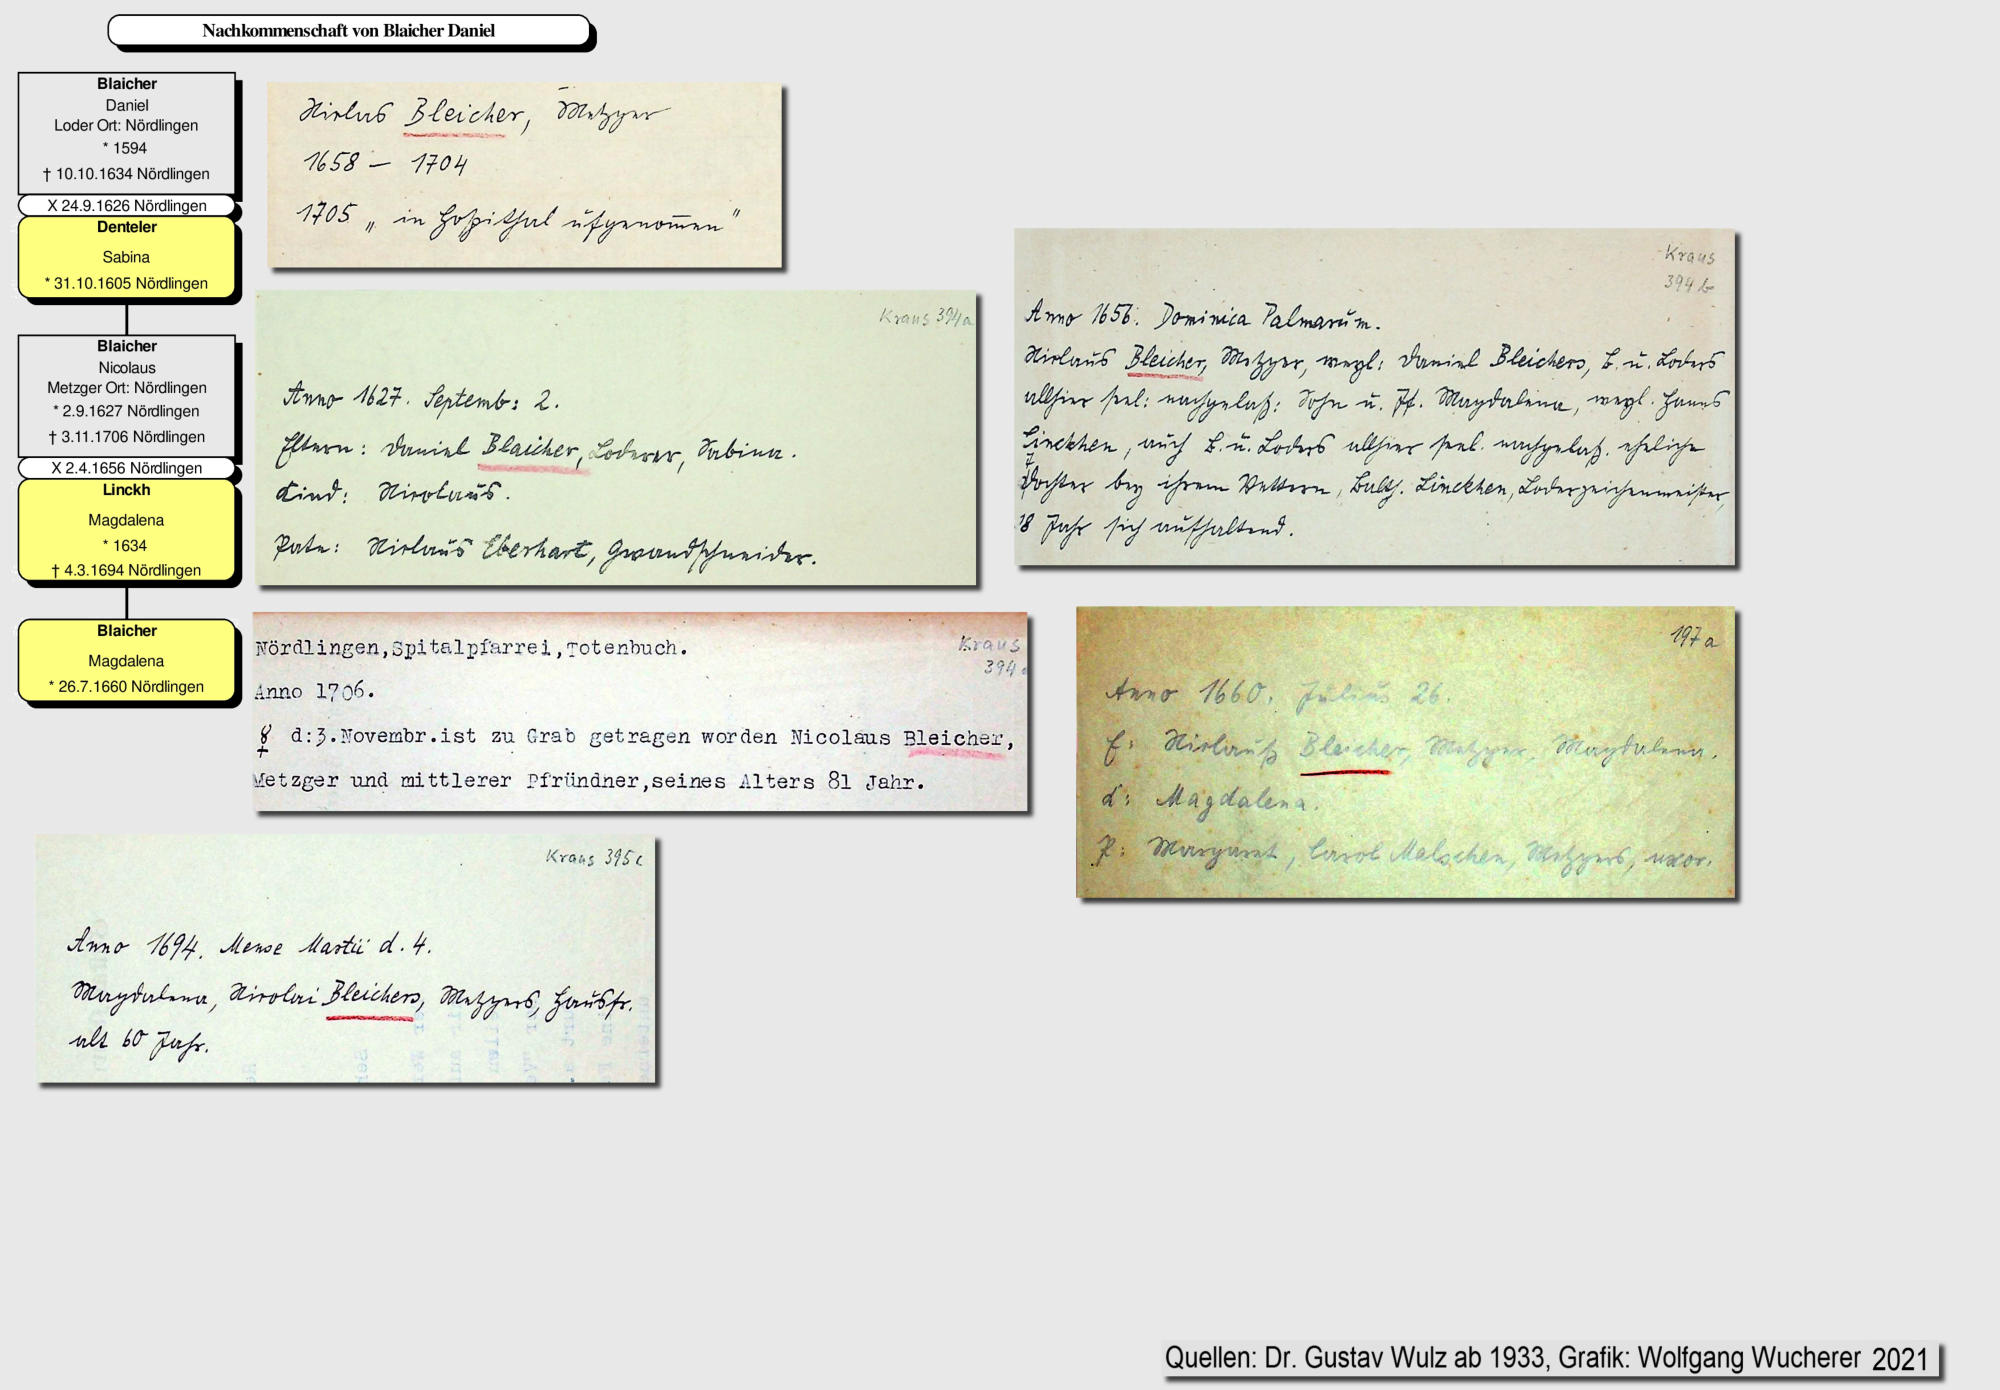 Nachkommenschaft von Blaicher Daniel
Blaicher
Daniel
Loder Ort: Nördlingen
* 1594
† 10.10.1634 Nördlingen
X 24.9.1626 Nördlingen
Denteler
Sabina
* 31.10.1605 Nördlingen
Blaicher
Nicolaus
Metzger Ort: Nördlingen
* 2.9.1627 Nördlingen
† 3.11.1706 Nördlingen
X 2.4.1656 Nördlingen
Linckh
Magdalena
* 1634
† 4.3.1694 Nördlingen
Blaicher
Magdalena
* 26.7.1660 Nördlingen
Niclas Bleicher, Metzger
1658 – 1704
1705 „ in Hospithal ufgenom̄en"
Kraus 394a
Anno 1627. Septemb: 2.
Eltern: Daniel Blaicher, Loderer, Sabina.
Kind: Nicolaus.
Pate: Niclaus Eberhart, Gwandschneider.
Kraus
394 b
Anno 1656. Dominica Palmarum.
Niclaus Bleicher, Metzger, weyl: Daniel Bleichers, B. u. Loders
allhier seel: nachgelaß: Sohn u. Jf. Magdalena, weyl. Hanns
Linckhen, auch B. u. Loders allhier seel. nachgelaß. eheliche
Tochter bey ihrem Vettern, Balth. Linckhen, Loderzeichenmeister,
18 Jahr sich aufhaltend.
Nördlingen,Spitalpfarrei,Totenbuch.
Kraus
394
Anno 1706.
d:3.Novembr.ist zu Grab getragen worden Nicolaus Bleicher,
Metzger und mittlerer Pfründner,seines Alters 81 Jahr.
197a
Anno 1660. Julius 26.
E: Niclauß Bleicher, Metzger, Magdalena.
K: Magdalena.
P: Margaret, Carol Malschen, Metzgers, uxor.
Kraus 395c
Anno 1694. Mense Martii d. 4.
Magdalena, Nicolai Bleichers, Metzgers, Hausfr.
alt 60 Jahr.
Quellen: Dr. Gustav Wulz ab 1933, Grafik: Wolfgang Wucherer 2021